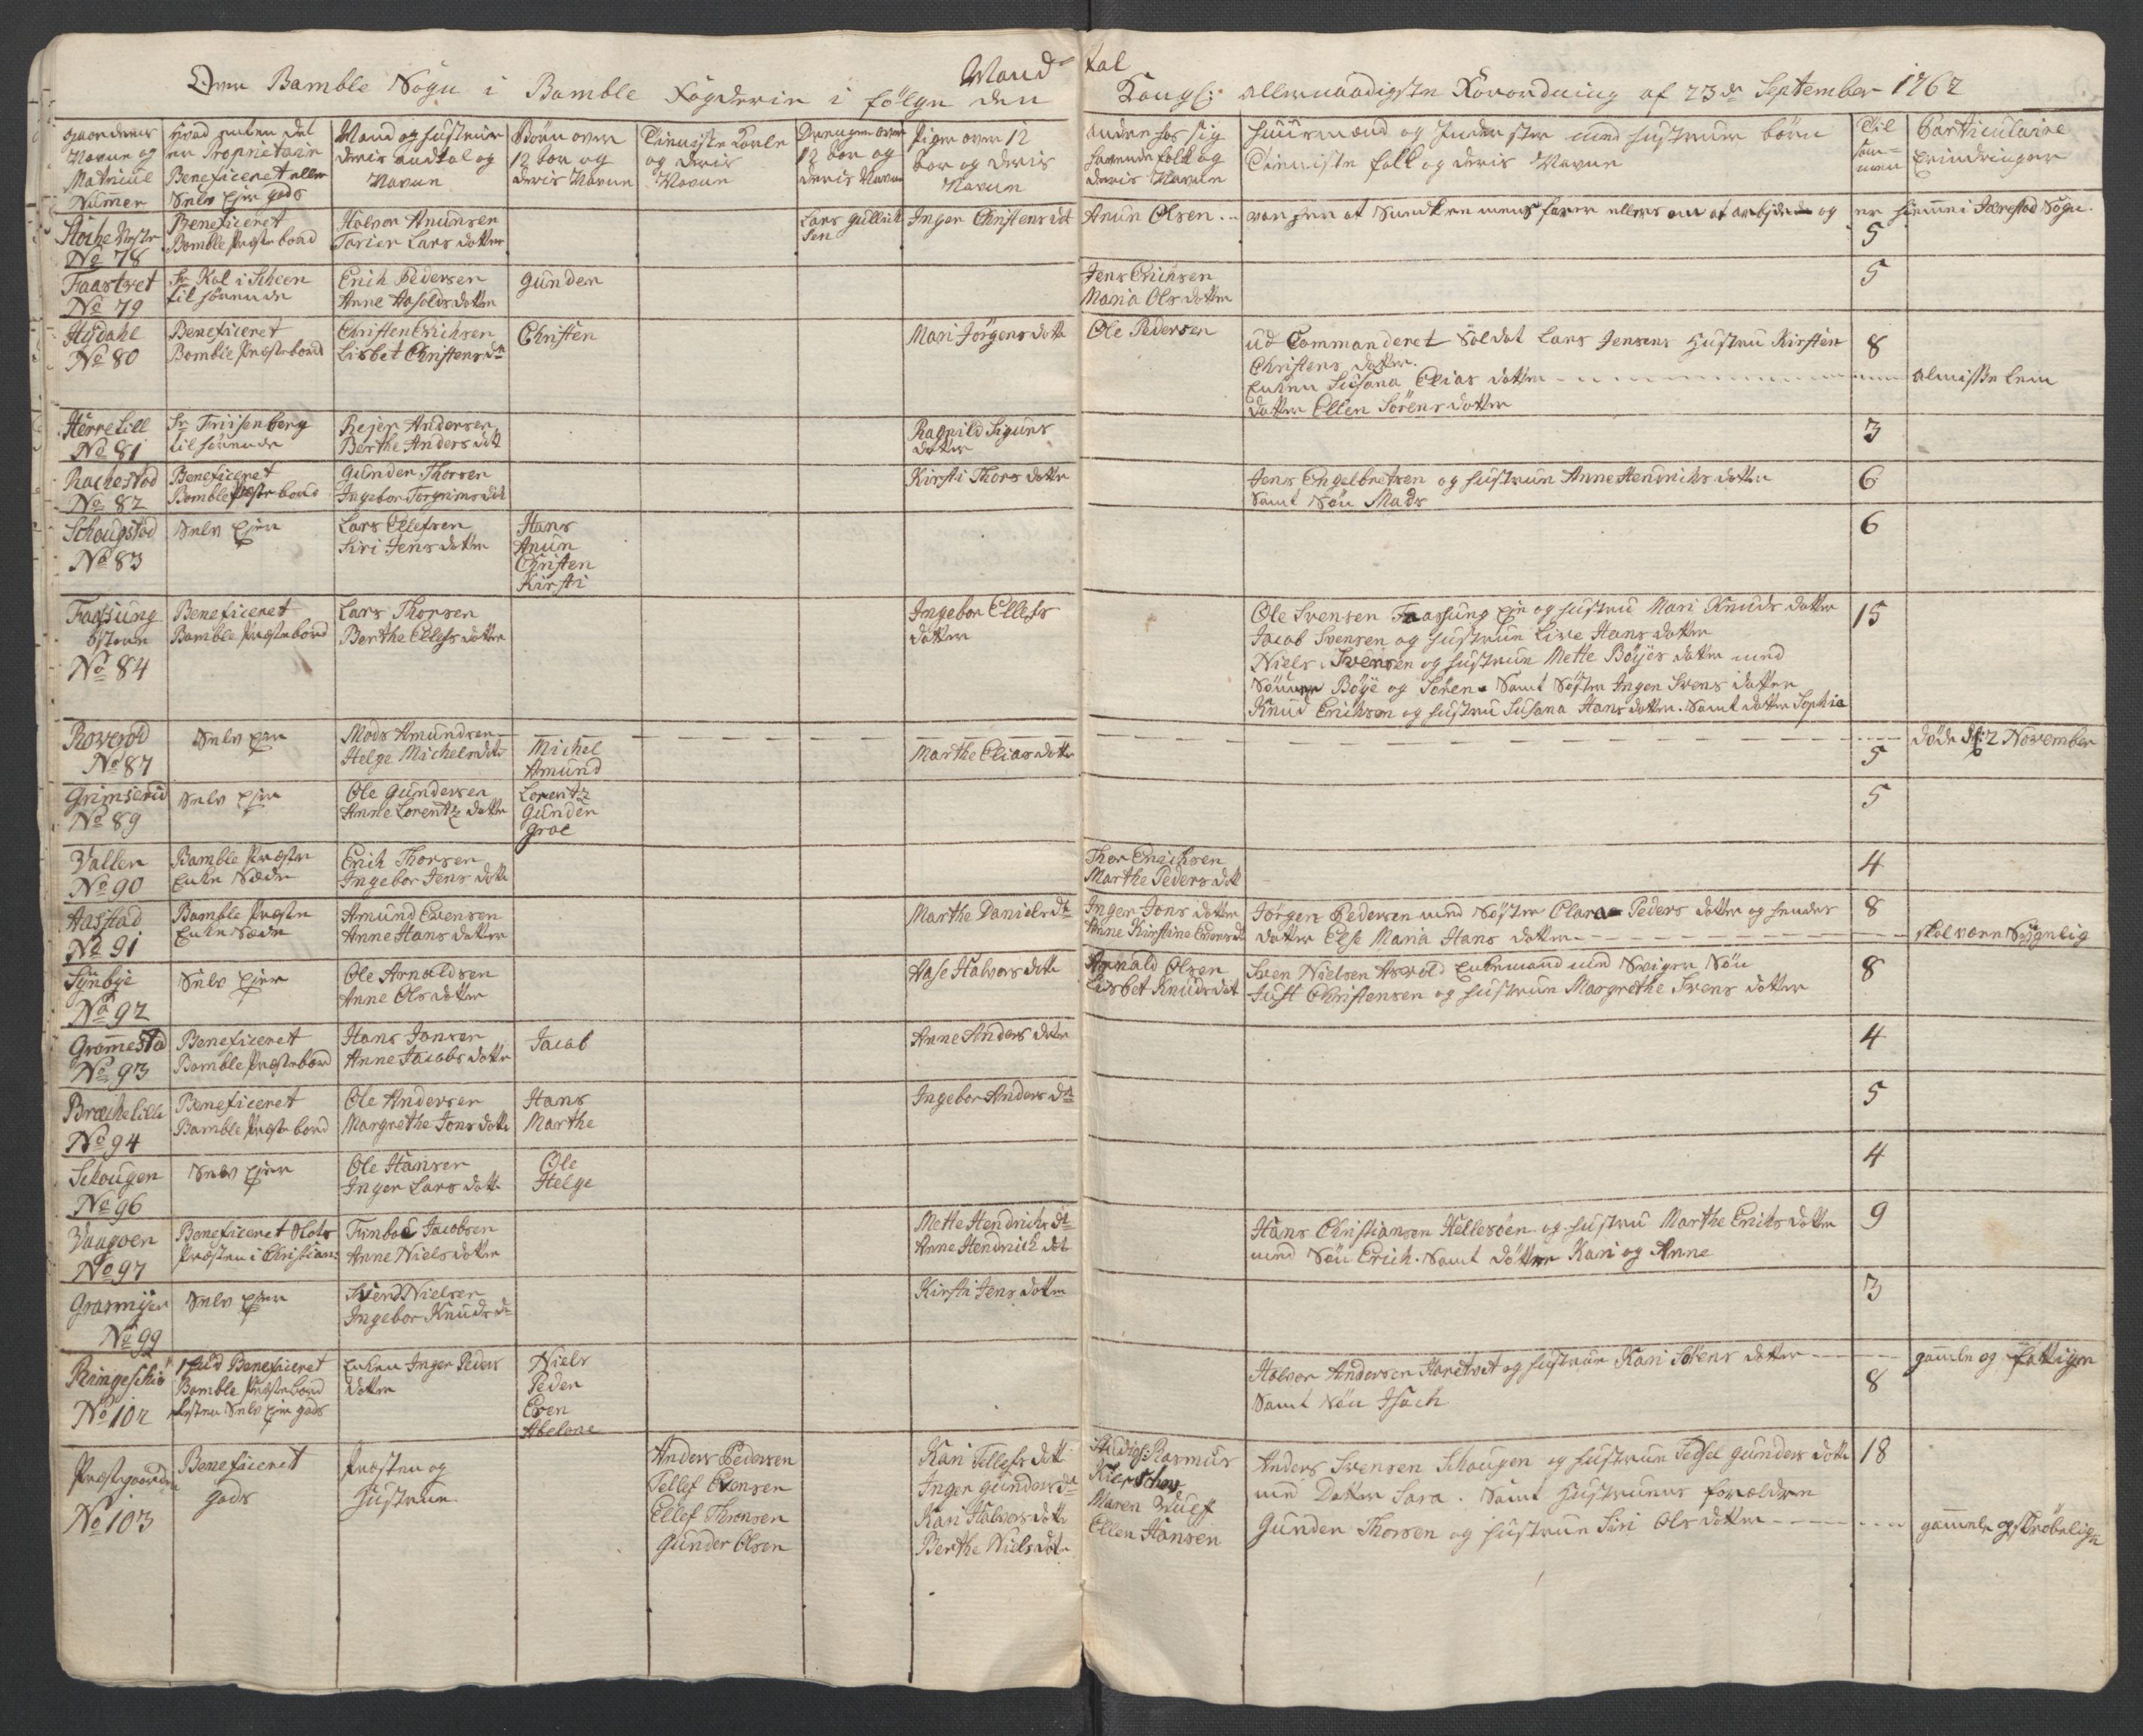 Mandtal
Over Bamble Sogn i Bamble Fogderie i følge den Kongl: allernaadigste Forordning af 23de September 1762
gaardenes Navne og Matricul Numer
Hvad enten det er Proprietair Beneficeret eller Selv Ejer gods
Mand og Hustruer deris andtal og Navne
Børn over 12 Aar og deris Navne
Tieniste Karle og deris Navne
Drenge over 12 Aar og deris Navne
Piger over 12 Aar og deris Navne
andre hos sig havende folk og deris Navne
Huusmænd og Inderster med Hustruer børn Tieniste folk og deris Navne
Til sam=men
Particulaire Erindringer
No 78
Beneficeret
Bamble Præstebord
Halvor Anunsen
Torier Lars datter
Lars Gullich
sen
Inger Christens dt
Anun Olsen
5
Faastvet
No 79
Sr Kal i Scheen
tilhørende
Erich Pedersen
Anne Aasolds datter
Gunder
Jens Erichsen
Maria Ols datter
5
Hydahl
No 80
Beneficeret
Bamble Præstebord
Christen Erichsen
Lisbet Christens dtr
Christen
Mari Jørgens datt
Ole Pedersen
ud Commanderet Soldat Lars Jensens Hustru Kirsten
Christens datter.
Enken Susana Elias datter
datter Ellen Sørens datter
8
almisse lem
Herrelill
No 81
Sr Friisenberg
tilhørende
Rejer Andersen
Berthe Anders dt
Ragnild Siguns
datter
3
Rachestad
No 82
Beneficeret
Bamble Præstebord
Gunder Thorsen
Ingebor Torgrims dt
Kirsti Thors datter
Jens Engelbretsen og Hustrue Anne Hendrichs datter
Samt Søn Mads
6
Schougstad
No 83
Selv Ejer
Lars Ellefsen
Siri Jens datter
Hans
Anun
Christen
Kirsti
6
Faassung
østere
No 84
Beneficeret
Bamble Præstebord
Lars Thorsen
Berthe Ellefs datter
Ingebor Ellefs
datter
Ole Svensen Faassung Eje og Hustru Mari Knuds datter
Jacob Svensen og Hustrue Live Hans datter
Niels Svensen og Hustrue Mette Böyes datter med
Sønner Böye og Søren. Samt Søster Inger Svens datter
Knud Erichsen og Hustru Susana Hans datter. Samt datter Sophia
15
Roverød
No 87
Selv Ejer
Mads Amundsen
Helge Michels datt
Michel
Amund
Marthe Elias datt
5
døde d: 2 November
Grimserød
No 89
Selv Ejer
Ole Gundersen
Anne Lorentz datter
Lorentz
Gunder
Groe
5
Valler
No 90
Bamble Præste
Enke Sæde
Erich Thorsen
Ingebor Jens datt
Thor Erichsen
Marthe Peders dtt
4
Aasstad
No 91
Bamble Præste
Enke Sæde
Amund Evensen
Anne Hans datter
Marthe Daniels dt
Inger Jons datter
Anne Kirstine Evens dt
Jørgen Pedersen med Søster Clara Peders datter og hendes
datter Else Maria Hans datter
8
skal være Sygelig
Synbye
No 92
Selv Ejer
Ole Arnoldsen
Anne Ols datter
Aase Halvors datt
Arnold Olsen
Lisbet Knuds dat
Sven Nielsen Asvold Enkemand med Sviger Søn
Just Christensen og Hustrue Margrethe Svens datter
8
Grommestad
No 93
Beneficeret
Bamble Præstebord
Hans Jansen
Anne Jacobs datter
Jacob
Anne Anders datr
4
Brechelille
No 94
Beneficeret
Bamble Præstebord
Ole Andersen
Margrethe Jons datt
Hans
Marthe
Ingebor Anders dt
5
Schougen
No 96
Selv Ejer
Ole Hansen
Inger Lars datt
Ole
Helge
4
Vaagøen
No 97
Beneficeret Slots
Præsten i Christians
Timboe Jacobsen
Anne Niels datter
Mette Hendrichs dt
Anne Hendrich dt
Hans Christiansen Hellesöen og Hustru Marthe Erichs datter
med Søn Erich. Samt døttre Kari og Anne
9
Grasmyr
No 99
Selv Ejer
Svend Nielsen
Ingebor Knuds dt
Kirsti Jens datter
3
Ringeschiö
No 102
1 Hud Beneficeret
Bamble Præstebord
Resten Selv Ejer gods
Enken Inger Peders
datter
Niels
Peder
Even
Abelone
Halvor Andersen Haretvet og Hustrue Kari Sørens datter
Samt Søn Isach
8
gamle og fattige
Præstegaarden
No 103
Beneficeret
gods
Præsten og
Hustrue
Anders Pedersen
Tellef Evensen
Ellef Thronsen
Gunder Olsen
Kari Tellefs datt
Inger Gunders dt
Kari Halvors datt
Berthe Niels datt
Studios: Rasmus
Kierschow
Maren Wulf
Ellen Hansen
Anders Svensen Schougen og Hustrue Sidsel Gunders datt
med Datter Sara. Samt Hustruens forældre
Gunder Thorsen og Hustrue Siri Ols datter
18
gamle og skrøbelige